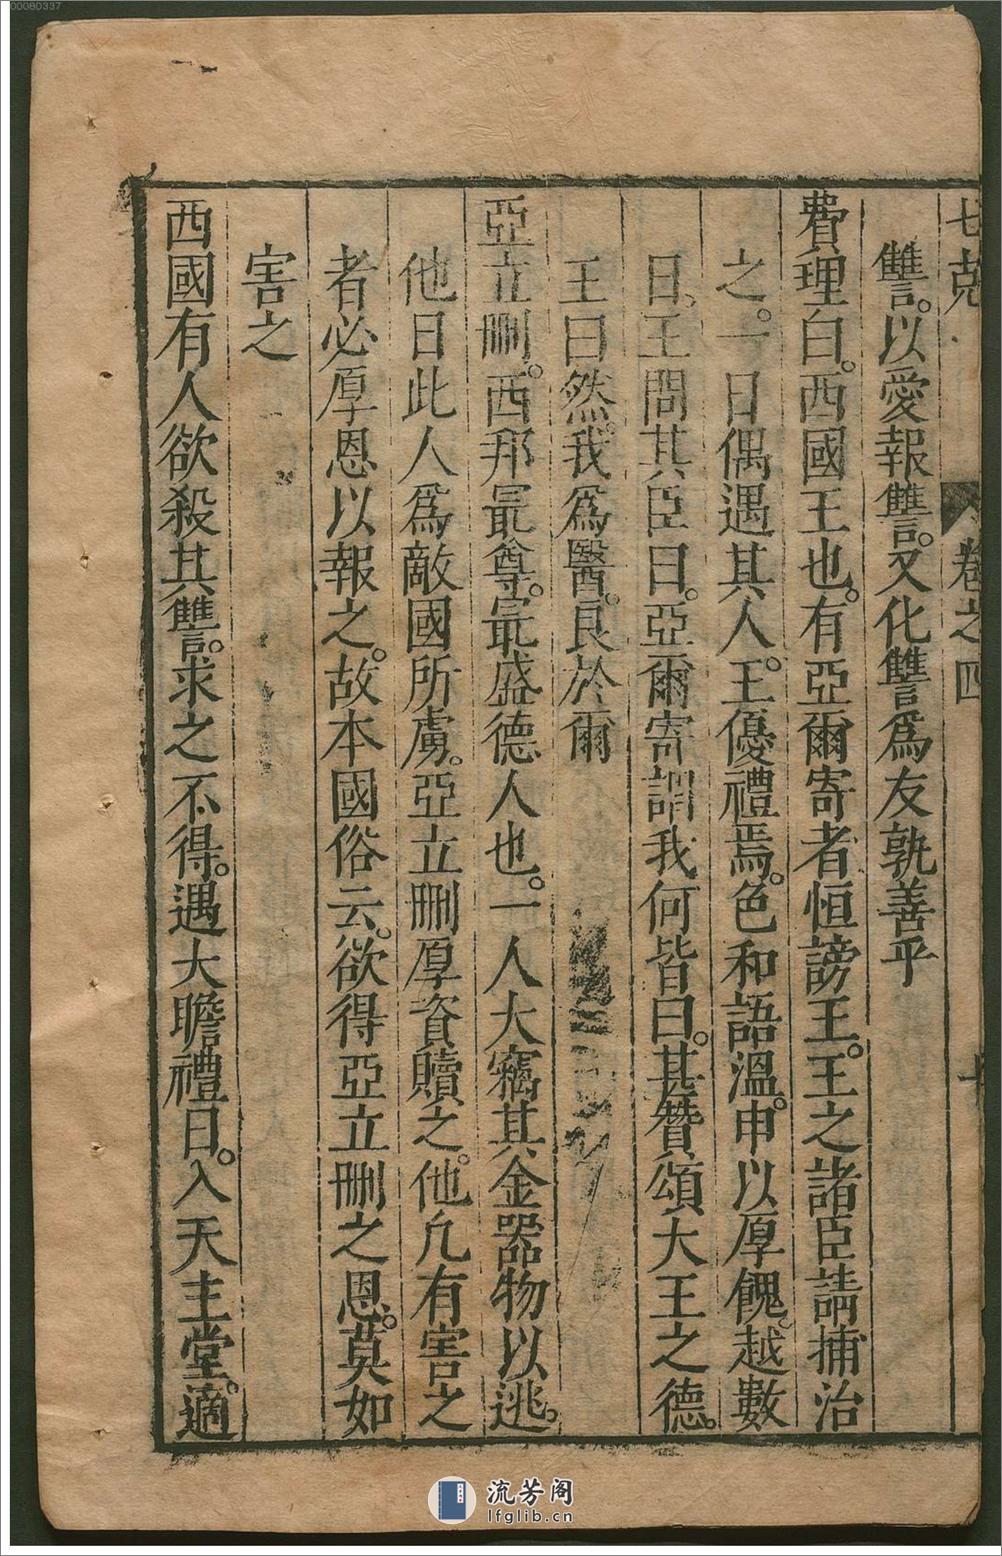 00080337
七克
卷之四
十
讐。以愛報讐。又化讐爲友孰善乎
費理白。西國王也。有亞爾寄者恒謗王。王之諸臣請捕治
之。一日偶遇其人。王優禮焉。色和語溫。申以厚餽。越數
日。王問其臣曰。亞爾寄謂我何皆曰。甚贊頌大王之德。
王曰然。我爲醫。良於爾
亞立刪。西邦最尊。最盛德人也。一人大竊其金器物以逃。
他日此人爲敵國所虜。亞立刪厚資贖之。他凢有害之
者必厚恩以報之。故本國俗云。欲得亞立刪之恩。莫如
害之
西國有人欲殺其讐。求之不得。遇大瞻禮日。入天主堂。適
流芳阁
lfglib.cn